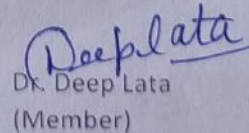 Deep lata
Dr. Deep Lata
(Member)